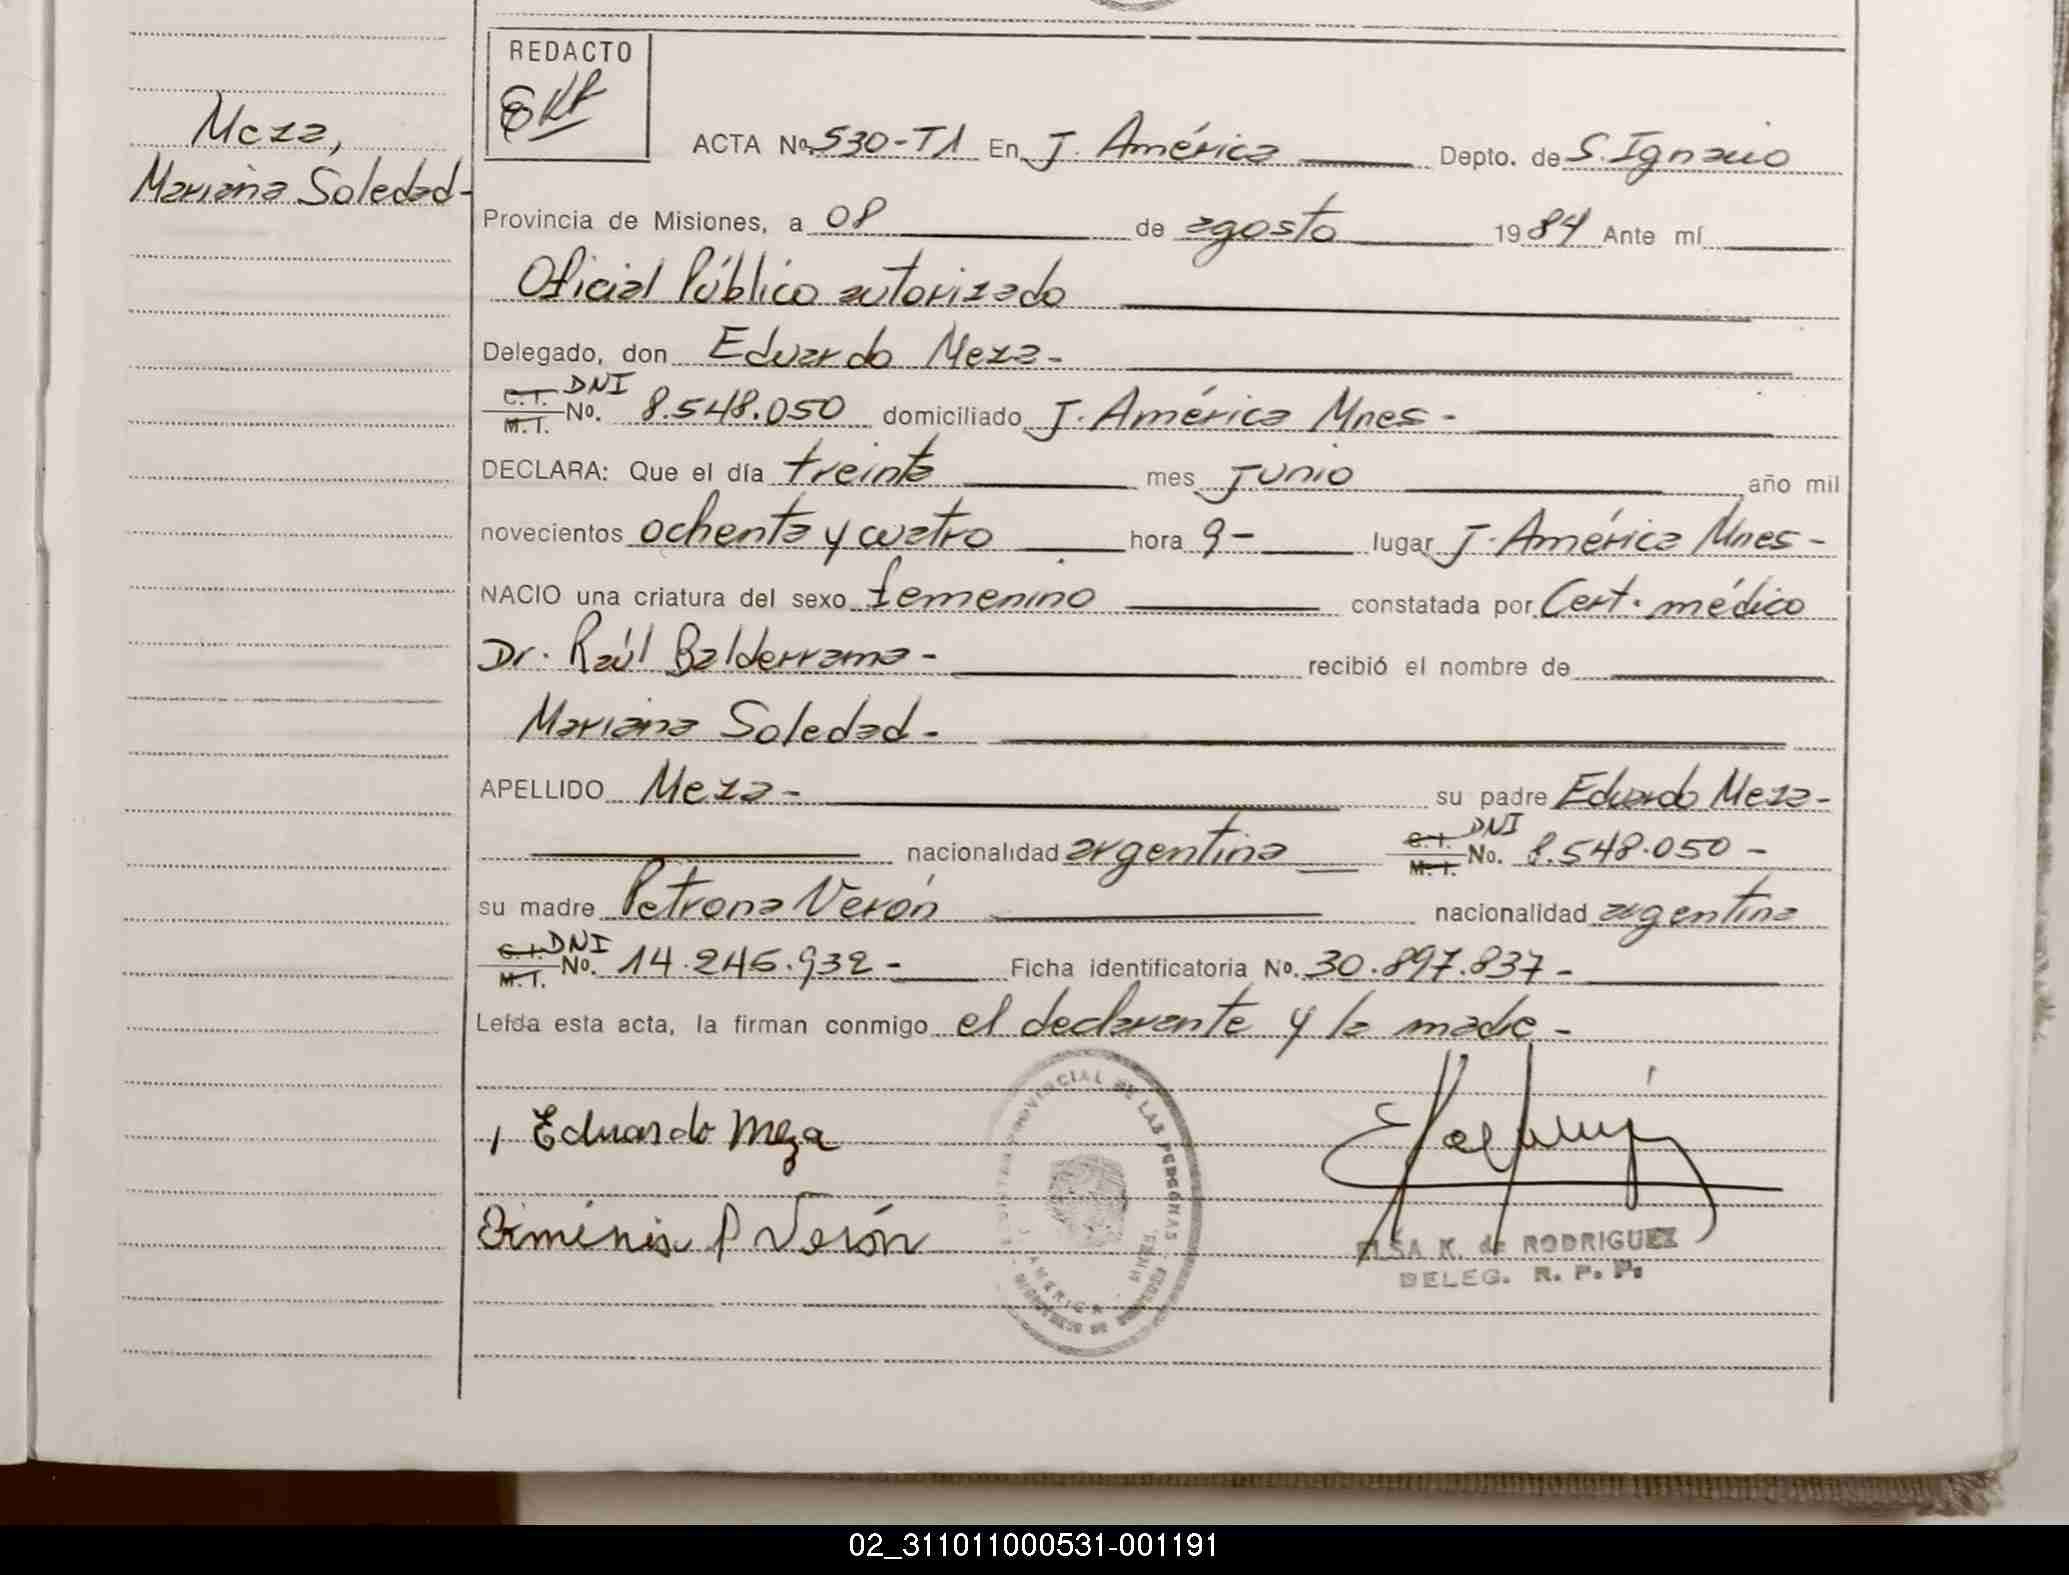 REDACTO
Meza,
Mariana Soledad-
ACTA No. 530-T1 En J. América Depto. de S. Ignacio
Provincia de Misiones, a 08 de agosto 1984 Ante mí
Oficial Público autorizado
Delegado, don Eduardo Meza-
C.I. M.I. DNI No. 8.548.050 domiciliado J. América Mnes-
DECLARA: Que el día treinta mes junio año mil
novecientos ochenta y cuatro hora 9- lugar J. América Mnes-
NACIO una criatura del sexo femenino constatada por Cert. médico
Dr. Raúl Balderrama- recibió el nombre de
Mariana Soledad-
APELLIDO Meza- su padre Eduardo Meza-
nacionalidad argentina C.I. M.I. DNI No. 8.548.050-
su madre Petrona Verón nacionalidad argentina
C.I. M.I. DNI No. 14.246.932- Ficha identificatoria No. 30.897.837-
Leída esta acta, la firman conmigo el declarante y la madre-
Eduardo Meza
P Verón
PROVINCIAL DE LAS PERSONAS
AMERICA
ELSA K. de RODRIGUEZ
DELEG. R. P. P.
02_311011000531-001191